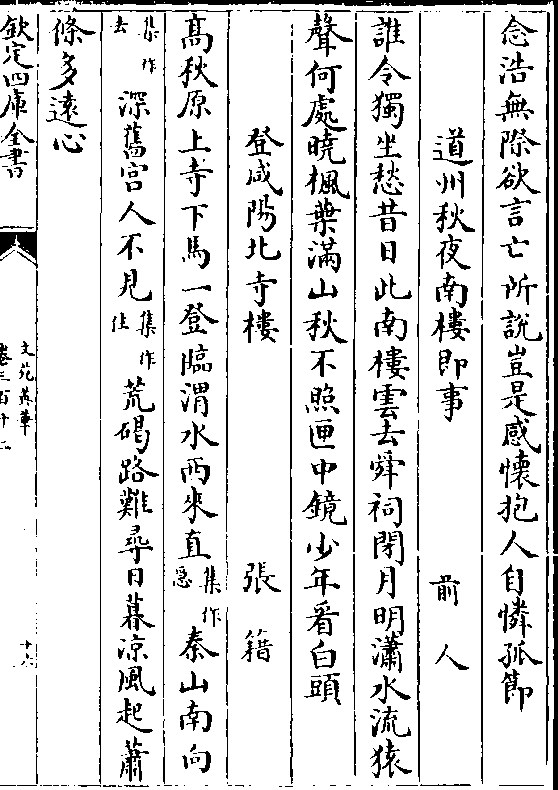 念浩無際欲言亡所說豈是感懷抱人自憐孤節
道州秋夜南樓即事 前人
誰令獨坐愁昔日此南樓雲去舜祠閉月明瀟水流猿
聲何處曉楓葉滿山秋不照匣中鏡少年看白頭
登咸陽北寺樓 張籍
髙秋原上寺下馬一登臨渭水西來直集作急秦山南向
集作去深舊宫人不見集作住荒碣路難尋日暮凉風起蕭
條多遠心
欽定四庫全書
文苑英華
卷三百十二
十六